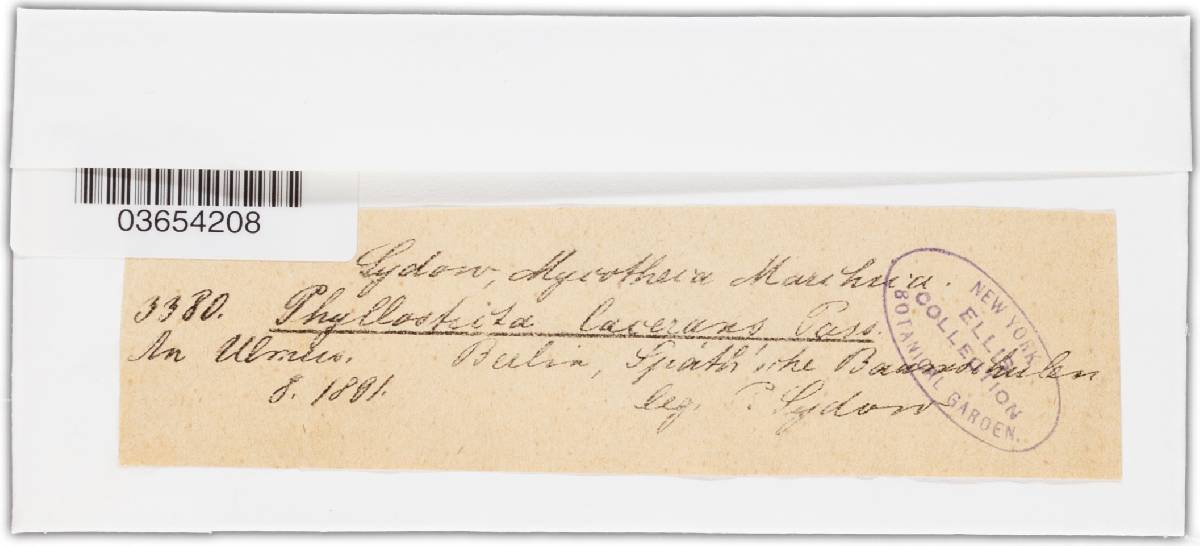 03654208
Sydow, Mycotheca Marchica.
3380. Phyllosticta lacerans Pass.
An Ulmus. Berlin, Späth'sche Baumschulen
8. 1891. leg. P. Sydow
NEW YORK
ELLIS
COLLECTION
BOTANICAL GARDEN.